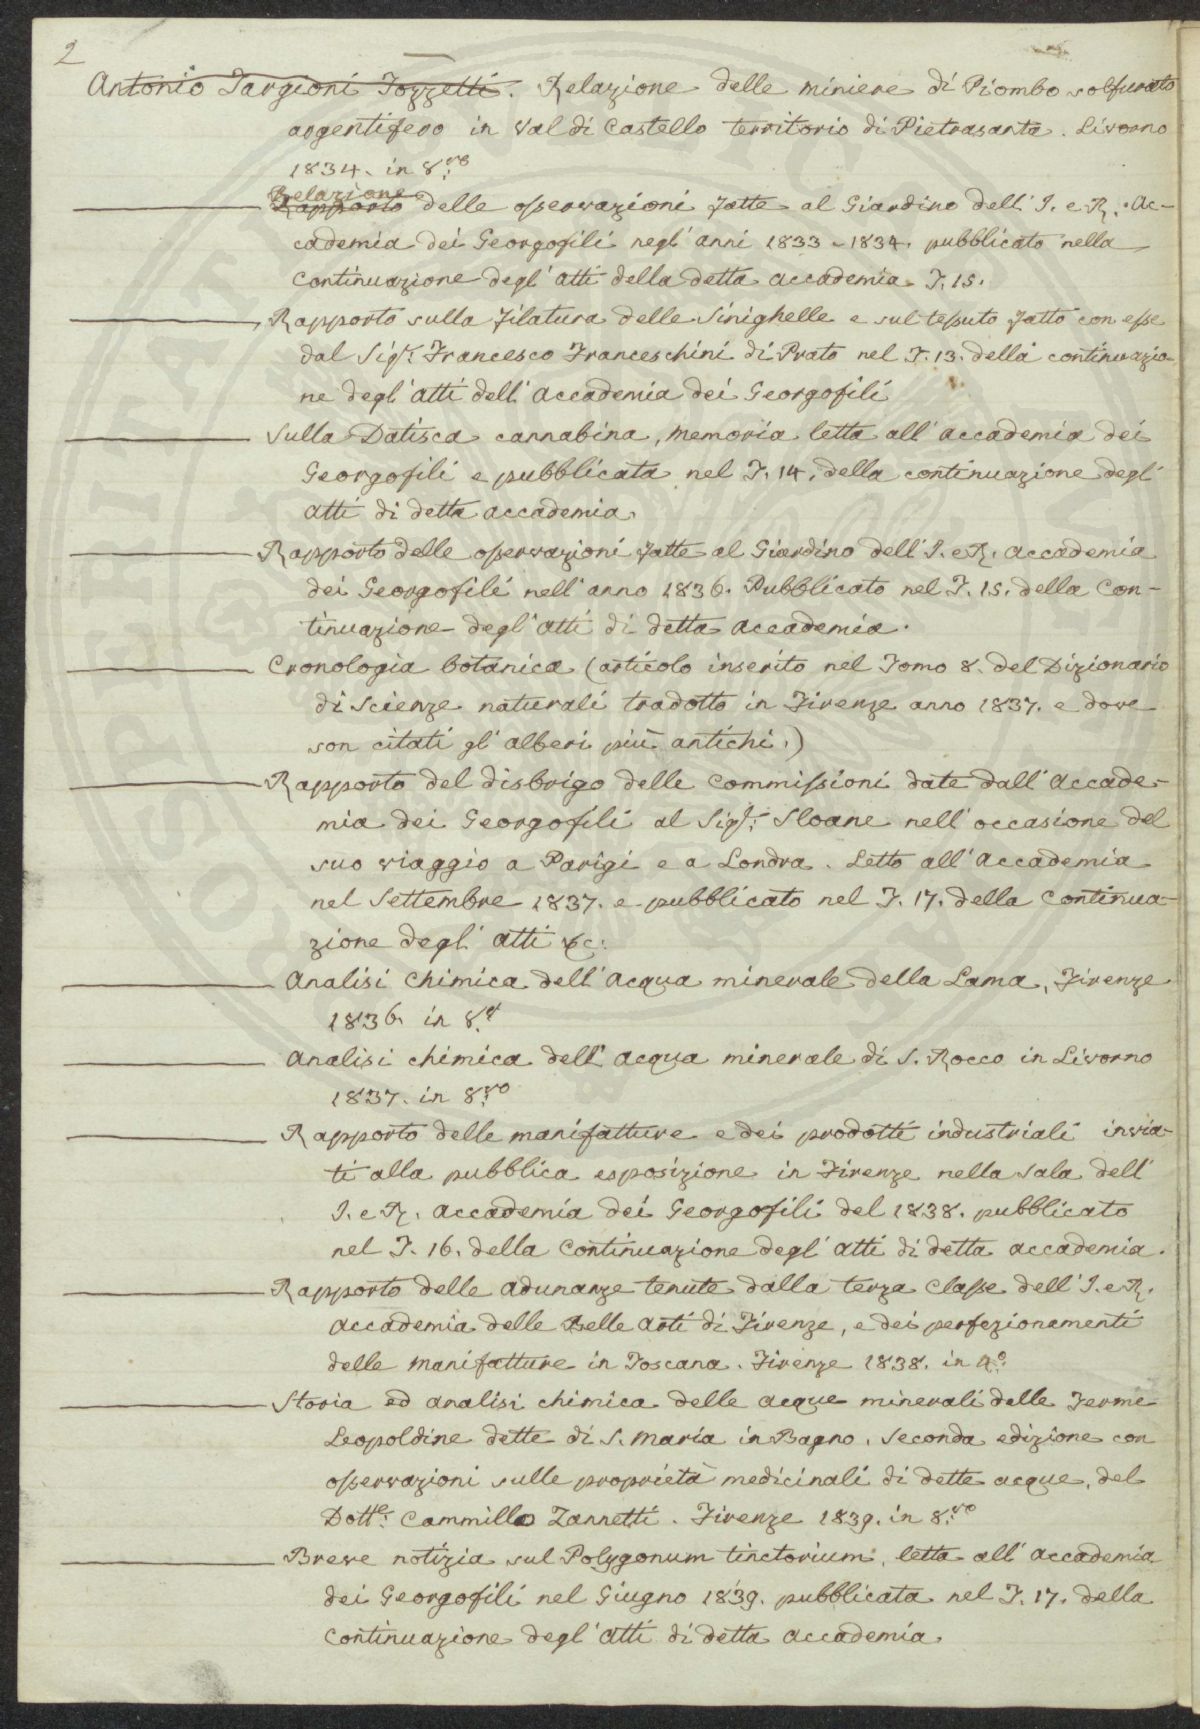 2
Antonio Targioni Tozzetti. Relazione delle miniere di Piombo solfurato
argentifero in Val di Castello territorio di Pietrasanta. Livorno
1834. in 8.vo
Relazione
Rapporto delle osservazioni fatte al Giardino dell' I. e R. Ac-
cademia dei Georgofili negl' anni 1833 - 1834. pubblicato nella
Continuazione degl' atti della detta accademia T. 15.
Rapporto sulla filatura delle Sinighelle e sul tessuto fatto con esse
dal Sigr. Francesco Franceschini di Prato nel T. 13. della continuazio-
ne degl' atti dell' accademia dei Georgofili
Sulla Datisca cannabina, memoria letta all' accademia dei
Georgofili e pubblicata nel T. 14. della continuazione degl'
atti di detta accademia
Rapporto delle osservazioni fatte al Giardino dell' I. e R. accademia
dei Georgofili nell' anno 1836. Pubblicato nel T. 15. della Con-
tinuazione degl' atti di detta accademia.
Cronologia botanica (articolo inserito nel Tomo 8. del Dizionario
di Scienze naturali tradotto in Firenze anno 1837. e dove
son citati gl' alberi più antichi.)
Rapporto del disbrigo delle Commissioni date dall' accade-
mia dei Georgofili al Sigr. Sloane nell' occasione del
suo viaggio a Parigi e a Londra. Letto all' accademia
nel Settembre 1837. e pubblicato nel T. 17. della Continua-
zione degl' atti &c.
Analisi Chimica dell' acqua minerale della Lama, Firenze
1836. in 8.°
Analisi chimica dell' acqua minerale di S. Rocco in Livorno
1837. in 8.vo
Rapporto delle manifatture e dei prodotti industriali invia-
ti alla pubblica esposizione in Firenze nella Sala dell'
I. e R. accademia dei Georgofili del 1838. pubblicato
nel T. 16. della Continuazione degl' atti di detta accademia.
Rapporto delle adunanze tenute dalla terza Classe dell' I. e R.
accademia delle Belle arti di Firenze, e dei perfezionamenti
delle manifatture in Toscana. Firenze 1838. in 4.°
Storia ed analisi chimica delle acque minerali delle Terme
Leopoldine dette di S. Maria in Bagno. Seconda edizione con
osservazioni sulle proprietà medicinali di dette acque, del
Dotte. Cammillo Zannetti. Firenze 1839. in 8.vo
Breve notizia sul Polygonum tinctorium, letta all' accademia
dei Georgofili nel Giugno 1839. pubblicata nel T. 17. della
Continuazione degl' atti di detta accademia.